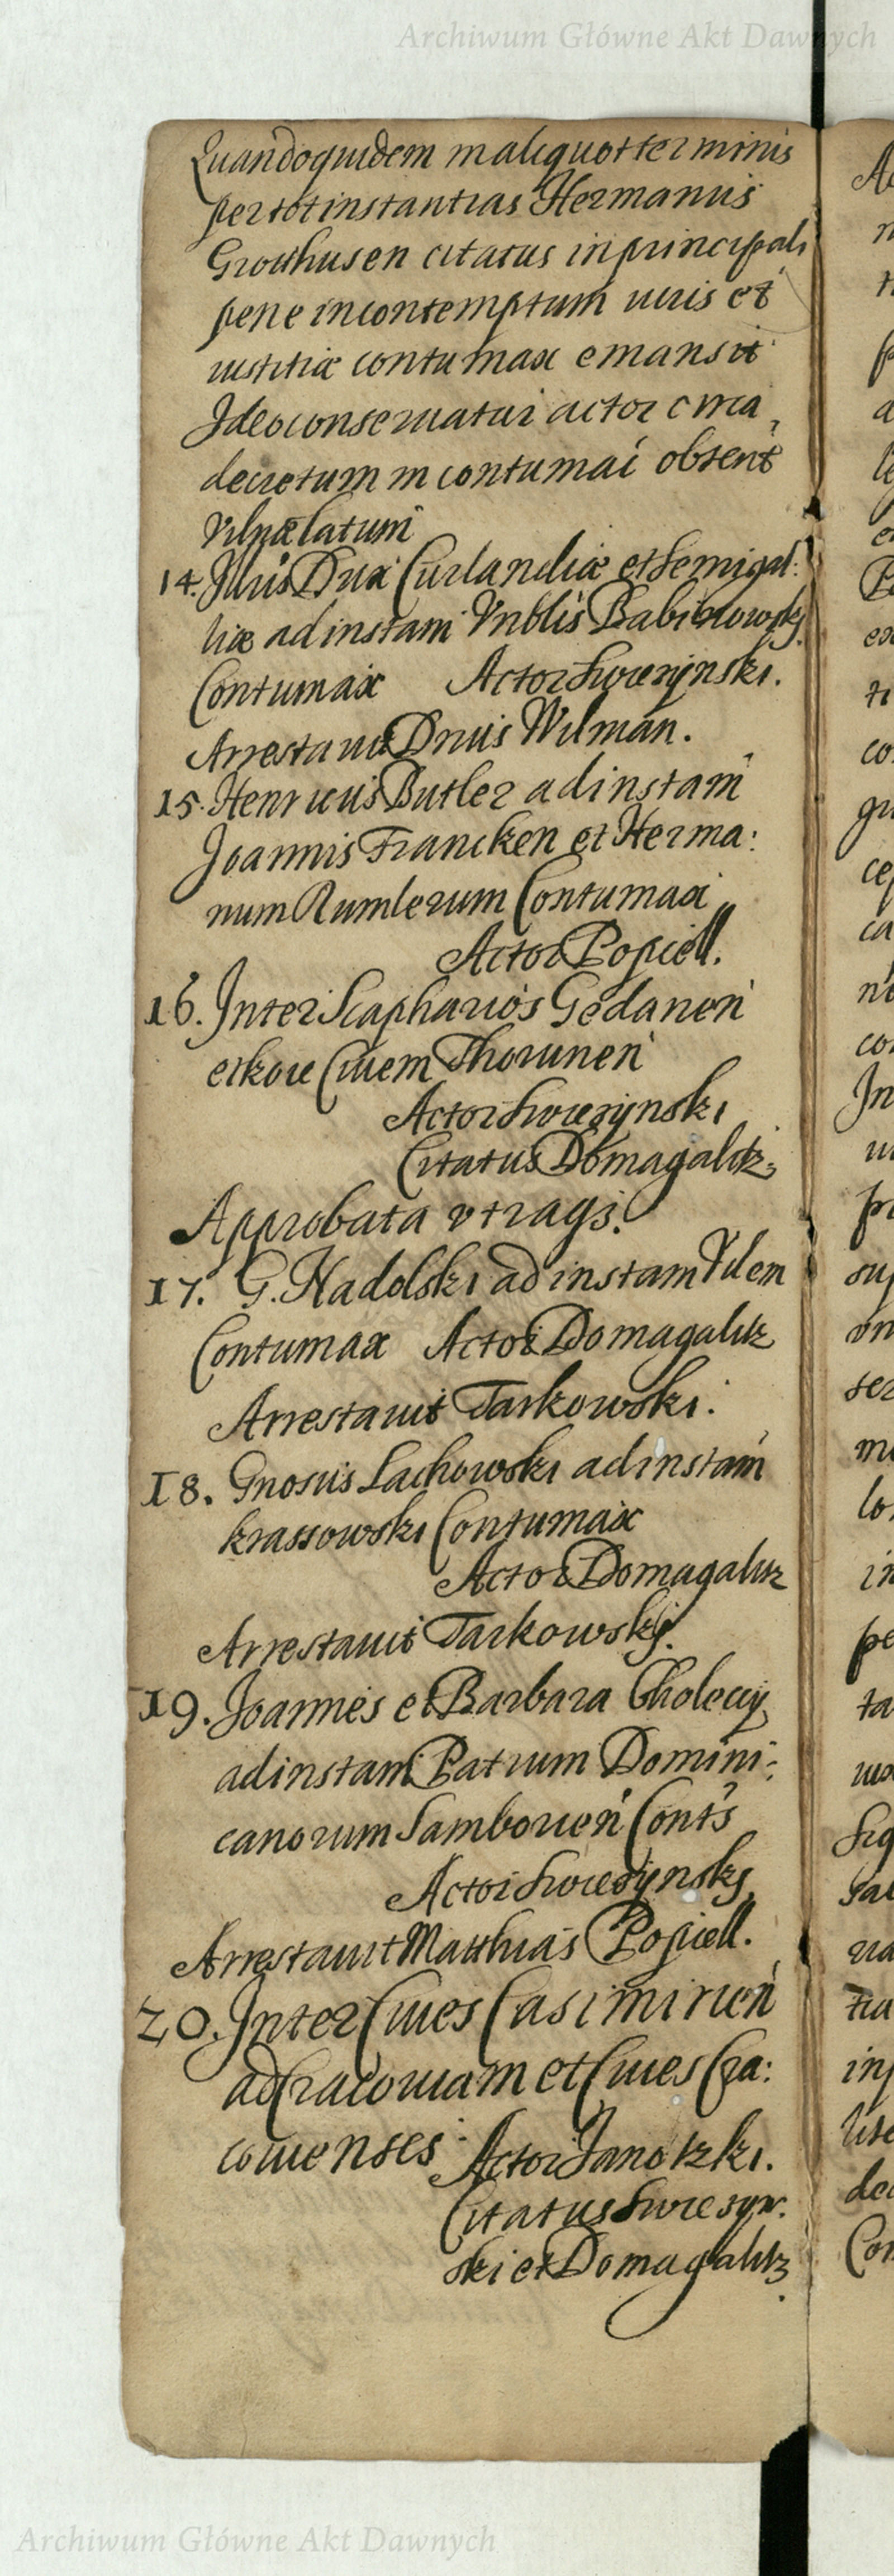 Archiwum Główne Akt Dawnych
Quandoquidem in aliquot terminis
per tot instantias Hermanus
Grothusen citatus in principali
pene in contemptum iuris et
iustitiæ contumax emansit
Ideo conseruatur actor circa
decretum in contumaci obtent
Vilnæ latum
14. Illus Dux Curlandiæ et Semigal:
liæ ad instam Vnblis Babinowskj
Contumax Actor Swierzynski.
Arrestauit Dnus Wilman.
15. Henricus Butler ad instam
Joannis Francken et Herma:
num Rumlerum Contumax
Actor Popiell.
16. Inter Scapharios Gedanen
et Ciuem Thorunen
Actor Swierzynski
Citatus Domagalitz
Approbata vtraqs.
17. G. Nadolski ad instam
Contumax Actor Domagalitz
Arrestauit Tarkowski.
18. Gnosus Lachowski ad instam
krassowski Contumax
Actor Domagalitz
Arrestauit Tarkowskj.
19. Joannes et Barbara Choleccy
ad instam Patrum Domini:
canorum Samborien Conts
Actor Swierzynskj
Arrestauit Matthias Popiell.
20. Inter Ciues Casimirien
ad Cracouiam et Ciues Cra:
couienses Actor Janotzki.
Citatus Swierzyn:
ski et Domagalitz
Archiwum Główne Akt Dawnych